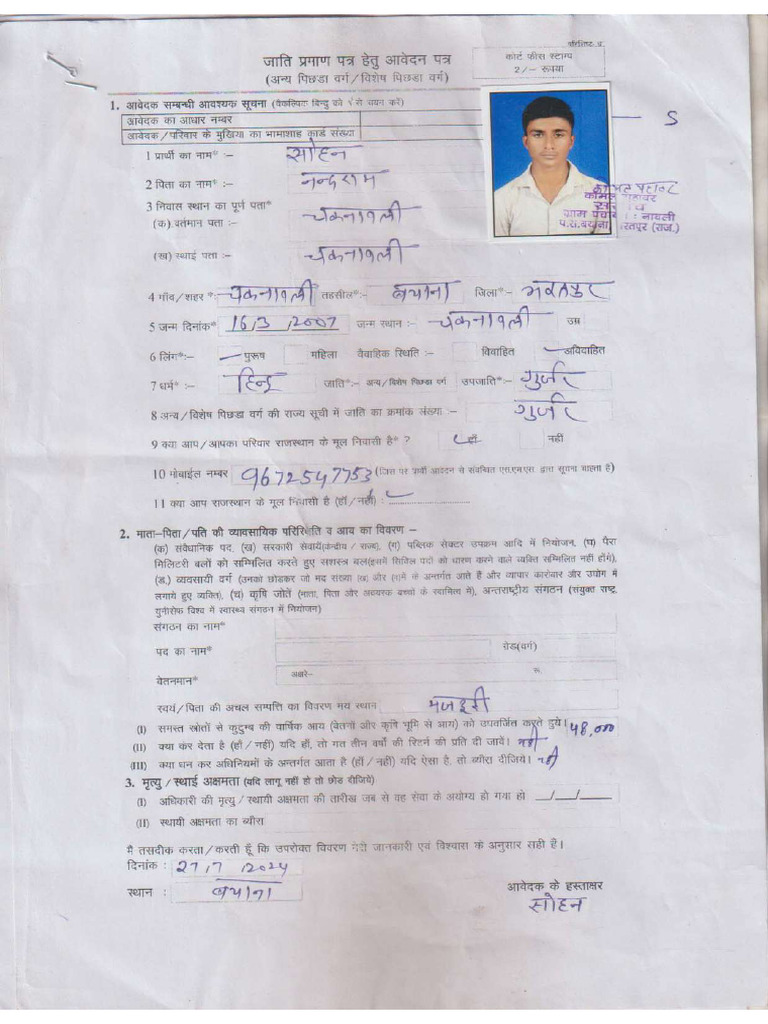 परिशिष्ट-द
जाति प्रमाण पत्र हेतु आवेदन पत्र
(अन्य पिछडा वर्ग/विशेष पिछडा वर्ग)
कोर्ट फीस स्टाम्प
2/— रूपया
1. आवेदक सम्बन्धी आवश्यक सूचना (वैकल्पिक बिन्दु को √ से चयन करें)
आवेदक का आधार नम्बर
आवेदक/परिवार के मुखिया का भामाशाह कार्ड संख्या
1 प्रार्थी का नाम* :— सोहन
2 पिता का नाम* :— नन्दराम
3 निवास स्थान का पूर्ण पता*
(क) वर्तमान पता :— चकनावली
(ख) स्थाई पता :— चकनावली
ग्राम पंचायत : नावली
4 गाँव/शहर *:— चकनावली तहसील*:— बयाना जिला*:— भरतपुर
5 जन्म दिनांक* 16/3/2007 जन्म स्थान :— चकनावली उम्र
6 लिंग*:— पुरूष महिला वैवाहिक स्थिति :— विवाहित अविवाहित
7 धर्म* :— हिन्दू जाति*:— अन्य/विशेष पिछडा वर्ग उपजाति*:— गुर्जर
8 अन्य/विशेष पिछडा वर्ग की राज्य सूची में जाति का क्रमांक संख्या :— गुर्जर
9 क्या आप/आपका परिवार राजस्थान के मूल निवासी है* ? हाँ नहीं
10 मोबाईल नम्बर 9672547753 (जिस पर प्रार्थी आवेदन से संबंधित एस.एम.एस द्वारा सूचना चाहता है)
11 क्या आप राजस्थान के मूल निवासी है (हाँ/नहीं) :
2. माता–पिता/पति की व्यावसायिक परिस्थिति व आय का विवरण –
(क) संवैधानिक पद, (ख) सरकारी सेवायें(केन्द्रीय/राज्य), (ग) पब्लिक सेक्टर उपक्रम आदि में नियोजन, (घ) पैरा
मिलिटरी बलों को सम्मिलित करते हुए सशस्त्र बल(इसमें सिविल पदों को धारण करने वाले व्यक्ति सम्मिलित नहीं होंगे),
(ड.) व्यवसायी वर्ग (उनको छोडकर जो मद संख्या (ख) और (ग)में के अन्तर्गत आते हैं और व्यापार कारोबार और उधोग में
लगाये हुए व्यक्ति), (च) कृषि जोतें (माता, पिता और अवयस्क बच्चो के स्वामित्व में), अन्तराष्ट्रीय संगठन (संयुक्त राष्ट्र,
युनीसेफ विश्व में स्वास्थ्य संगठन में नियोजन)
संगठन का नाम*
पद का नाम* ग्रेड(वर्ग)
वेतनमान* अक्षरे– रू.
स्वयं/पिता की अचल सम्पत्ति का विवरण मय स्थान मजदूरी
(I) समस्त स्रोतों से कुटुम्ब की वार्षिक आय (वेतनों और कृषि भूमि से भाग) को उपवर्जित करते हुये। 48,000
(II) क्या कर देता है (हाँ/नहीं) यदि हाँ, तो गत तीन वर्षो की रिटर्न की प्रति दी जावें। नही
(III) क्या धन कर अधिनियमों के अन्तर्गत आता है (हाँ/नहीं) यदि ऐसा है, तो ब्यौरा दीजिये। नही
3. मृत्यु/स्थाई अक्षमता (यदि लागू नहीं हो तो छोड दीजिये)
(I) अधिकारी की मृत्यु/स्थायी अक्षमता की तारीख जब से वह सेवा के अयोग्य हो गया हो __/__/__
(II) स्थायी अक्षमता का ब्यौरा
मैं तसदीक करता/करती हूँ कि उपरोक्त विवरण मेरी जानकारी एवं विश्वास के अनुसार सही है।
दिनांक : 27/7/2024
स्थान : बयाना
आवेदक के हस्ताक्षर
सोहन